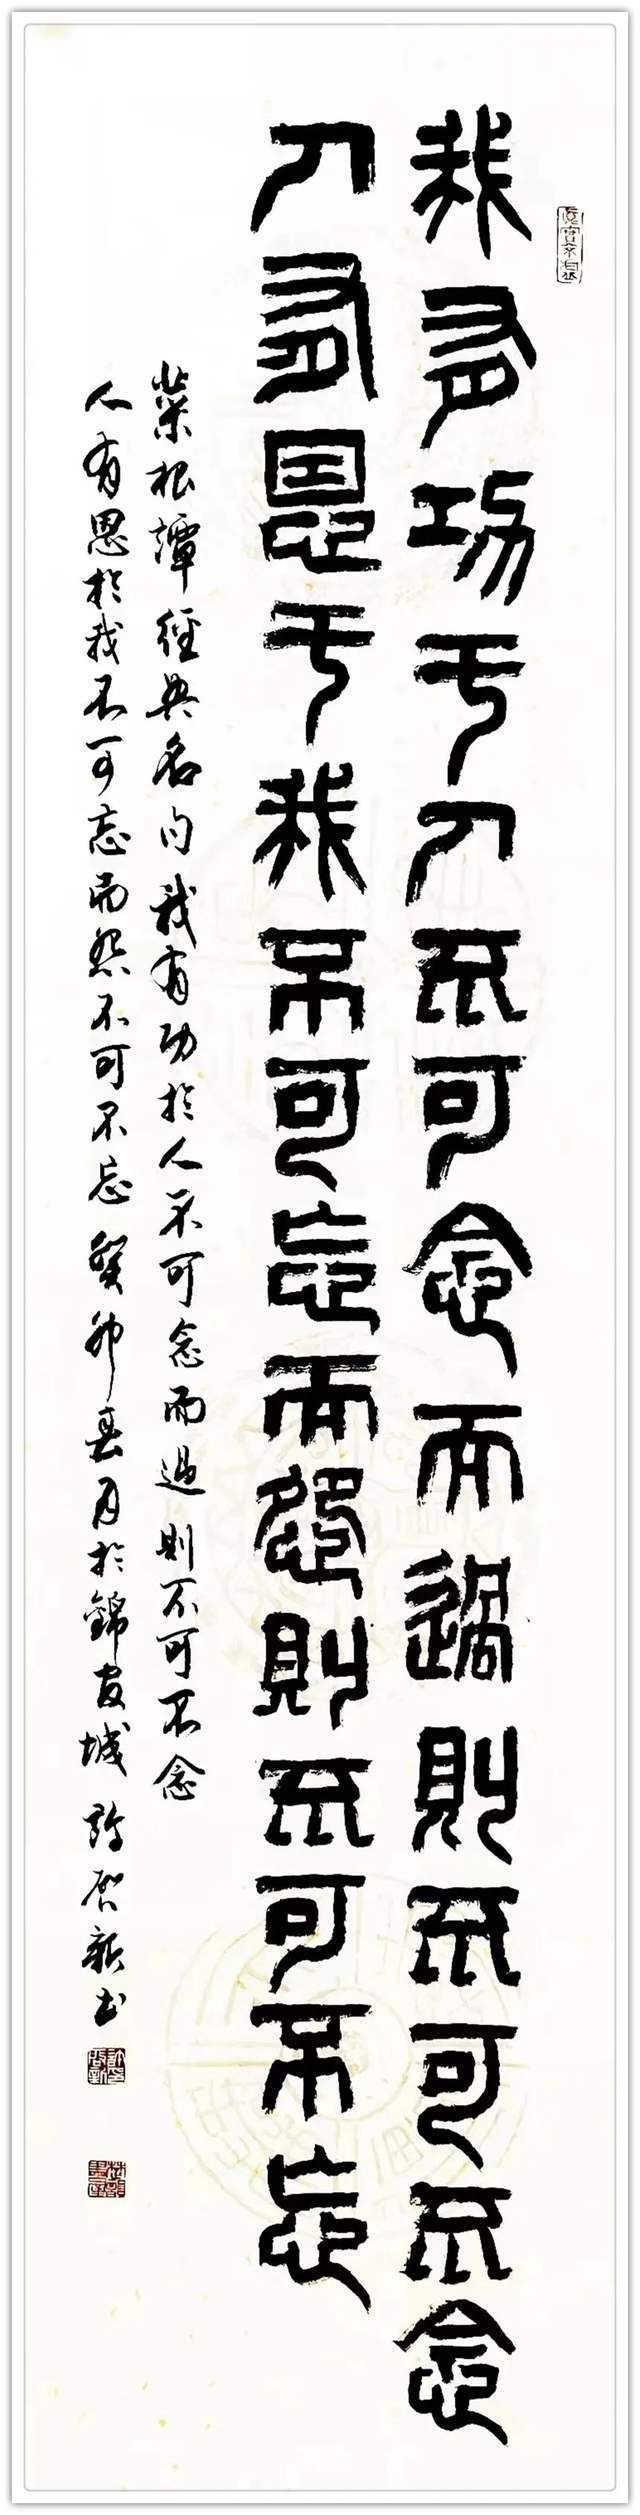 我有功于人不可念而過則不可不念
人有恩于我不可忘而怨則不可不忘
菜根譚經典名句我有功於人不可念而過則不可不念
人有恩於我不可忘而怨不可不忘癸卯春月於錦官城許啟新書